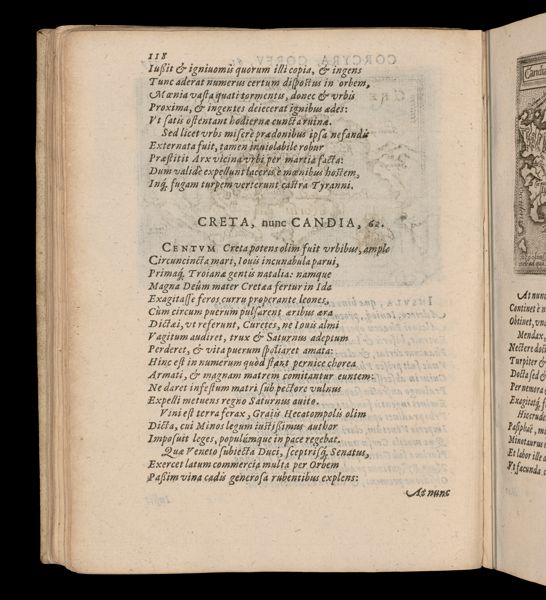 118
Iußit & igniuomis quorum illi copia, & ingens
Tunc aderat numerus certum dispostus in orbem,
Mœnia vasta quati tormentis, donec & vrbis
Proxima, & ingentes deiecerat ignibus ædes:
Vt satis ostentant hodiernæ cuncta ruinæ.
Sed licet vrbs miserè prædonibus ipsa nefandis
Externata fuit, tamen inuiolabile robur
Præstitit Arx vicina vrbi per martia facta:
Dum validè expellunt laceris è mœnibus hostem,
Inq́, fugam turpem verterunt castra Tyranni.
CRETA, nunc CANDIA, 62.
CENTVM Creta potens olim fuit vrbibus, amplo
Circuncincta mari, Iouis incunabula parui,
Primaq́, Troianæ gentis natalia: namque
Magna Deûm mater Cretæa fertur in Ida
Exagitasse feros curru properante leones,
Cum circum puerum pulsarent æribus æra
Dictæi, vt referunt, Curetes, ne Iouis almi
Vagitum audiret, trux & Saturnus adeptum
Perderet, & vita puerum spoliaret amata:
Hinc est in numerum quòd stant pernice chorea
Armati, & magnam matrem comitantur euntem:
Ne daret infestum matri sub pectore vulnus
Expelli metuens regno Saturnus auito.
Vini est terra ferax, Graijs Hecatompolis olim
Dicta, cui Minos legum iustißimus author
Imposuit leges, populúmque in pace regebat.
Qua Veneto subiecta Duci, sceptrisq́, Senatus,
Exercet latum commercia multa per Orbem
Paßim vina cadis generosa rubentibus explens:
At nunc
Candia
At nunc
Continet è
Obtinet, vn
Mendax,
Nectere
Turpiter &
Docta sed &
Per nemora
Exagitat,
Hic
Pasiphaë,
Minotaurus
Et labor ille
Vt facunda